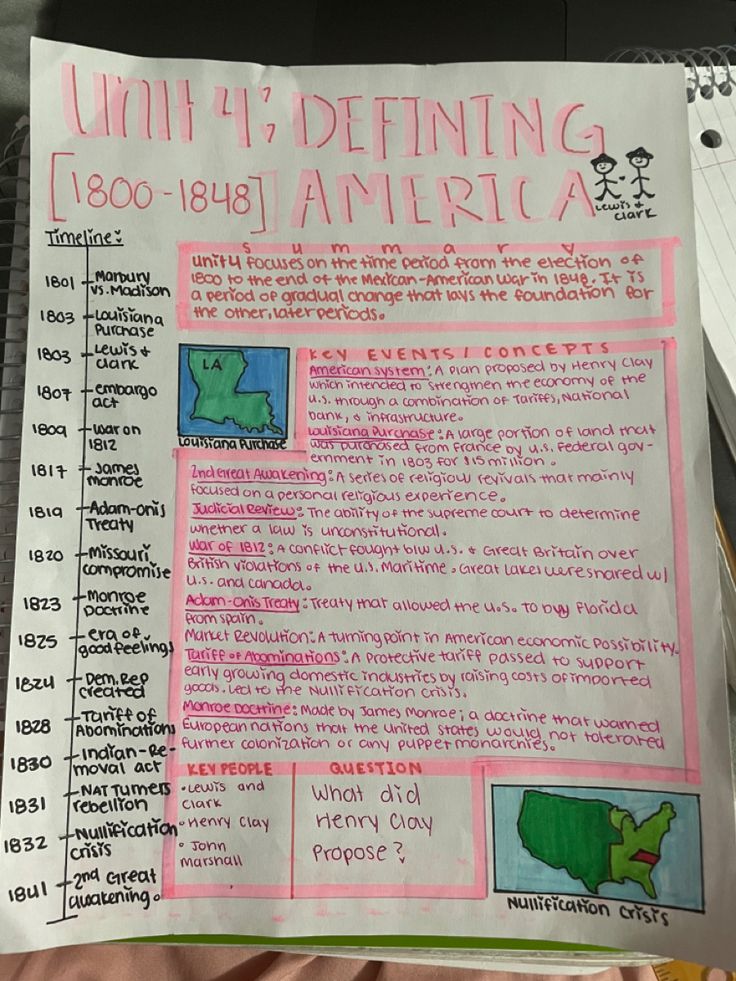 Unit 4: DEFINING
[1800-1848] AMERICA
Lewis &
Clark
Timeline:
1801 Marbury
vs. Madison
1803 Louisiana
Purchase
1803 Lewis &
Clark
1807 embargo
act
1809 war on
1812
1817 James
monroe
1819 Adam-onis
Treaty
1820 Missouri
compromise
1823 Monroe
Doctrine
1825 era of
good feelings
1824 Dem. Rep
created
1828 Tariff of
Abominations
1830 Indian-Re-
moval act
1831 NAT Turners
rebellion
1832 Nullification
crisis
1841 2nd Great
awakening.
summary
unit 4 focuses on the time period from the election of
1800 to the end of the Mexican-American War in 1848. It is
a period of gradual change that lays the foundation for
the other, later periods.
LA
Louisiana Purchase
KEY EVENTS / CONCEPTS
American system: A plan proposed by Henry Clay
which intended to strengthen the economy of the
U.S. through a combination of Tariffs, National
bank, & infrastructure.
Louisiana Purchase: A large portion of land that
was purchased from France by U.S. Federal gov-
ernment in 1803 for $15 million.
2nd Great Awakening: A series of religious revivals that mainly
focused on a personal religious experience.
Judicial Review: The ability of the supreme court to determine
whether a law is unconstitutional.
War of 1812: A conflict fought b/w U.S. & Great Britain over
British violations of the U.S. Maritime. Great Lakes were shared w/
U.S. and Canada.
Adam-Onis Treaty: Treaty that allowed the U.S. to buy Florida
from Spain.
Market Revolution: A turning point in American economic possibility.
Tariff of Abominations: A protective tariff passed to support
early growing domestic industries by raising costs of imported
goods. Led to the Nullification Crisis.
Monroe Doctrine: Made by James Monroe; a doctrine that warned
European nations that the United States would not tolerated
further colonization or any puppet monarchies.
KEY PEOPLE
• Lewis and
Clark
• Henry Clay
• John
Marshall
QUESTION
What did
Henry Clay
Propose?
Nullification Crisis